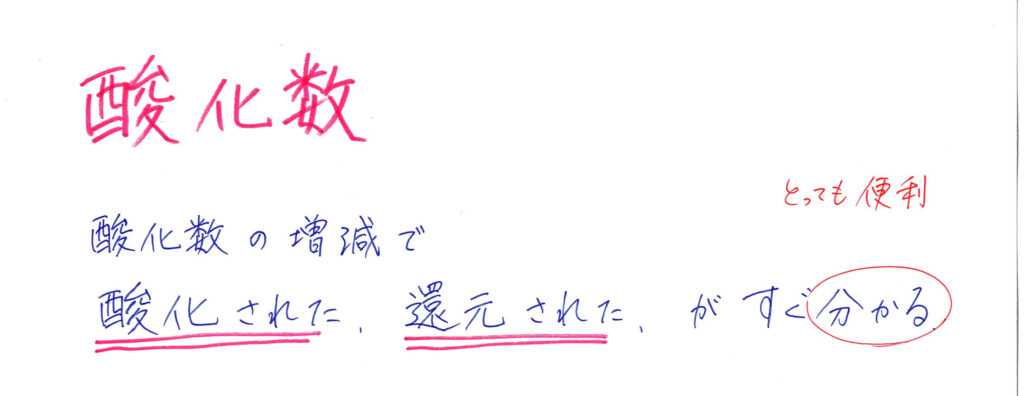 酸化数
とっても便利
酸化数の増減で
酸化された、還元された、がすぐ分かる.